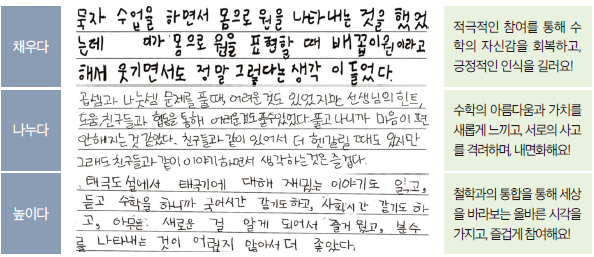 채우다
묵자 수업을 하면서 몸으로 원을 나타내는 것을 했었
는데 미가 몸으로 원을 표현할 때 배꼽이원이라고
해서 웃기면서도 정말 그렇다는 생각 이 들었다.
적극적인 참여를 통해 수
학의 자신감을 회복하고,
긍정적인 인식을 길러요!
나누다
곱셈과 나눗셈 문제를 풀때, 어려운것도 있었지만 선생님의 힌트,
도움 친구들과 협동을 통해 어려운것도 풀수있었다. 풀고 나니까 마음이 편
안해지는것 같았다. 친구들과 같이 있어서 더 헷갈릴 때도 있지만
그래도 친구들과 같이 이야기하면서 생각하는것은 즐겁다.
수학의 아름다움과 가치를
새롭게 느끼고, 서로의 사고
를 격려하며, 내면화해요!
높이다
태극도설에서 태극기에 대해 재밌는 이야기도 읽고,
듣고 수학을 하니까 국어시간 같기도하고, 사회시간 같기도 하
고, 아무튼 새로운 걸 알게 되어서 즐거웠고, 분수
를 나타내는 것이 어렵지 않아서 더 좋았다.
철학과의 통합을 통해 세상
을 바라보는 올바른 시각을
가지고, 즐겁게 참여해요!